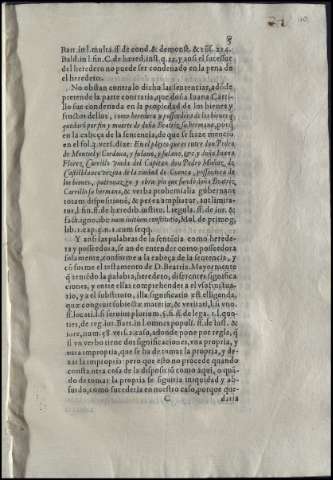 Bart. in l. multa. ff. de cond. & demonst. & cōs. 224.
Bald. in l. fin. C. de hæred. inst. q. 22. y ansi el sucessor
del heredero no puede ser condenado en la pena de
el heredero.
No obstan contra lo dicho las sentencias, a dōde
pretende la parte contraria, que doña Iuana Carri
llo fue condenada en la propiedad de los bienes y
fructos dellos, como heredera y posseedora de los bienes q̄
quedarō por fin y muerte de doña Beatriz su hermana, porq̄
en la cabeça de la sentencia, de que se haze menció
en el fol. vers. dize: En el pleyto que es entre don Pedro
de Montiel y Cordoua, y fulano, y fulano, &c. y doña Iuana
Carrillo viuda del Capitan don Pedro Muñoz de
Castilblanco vezina de la ciudad de Cuenca, posseedora de
los bienes, patronazgo, y obra pia que fundò doña Beatriz
Carrillo su hermana, & verba prohemialia gubernant
totam dispositionē, & per ea ampliatur, aut limita-
tur, l. fin. ff. de hæredib. instit. l. regula. ff. de iur. &
fact. ignor. ibi: nam initium constitutio, Mol. de primog.
lib. 1. cap. 5. n. 1. cum seqq.
Y ansi las palabras de la sentēcia como herede-
ra y posseedora, se an de entender como posseedora
solamente, conforme a la cabeça de la sentencia, y
cōforme el testamento de D. Beatriz. Mayormente
q̄ teniēdo la palabra, heredero, diferentes significa-
ciones, y entre ellas comprehender a el vsufructua-
rio, y a el substituto, illa significatio est eligenda,
quæ congruit subiectæ materiæ, & veritati, l. si vno.
ff. locati. l. si seruus plurium. §. fi. ff. de lega. 1. l. quo-
ties, de reg. iur. Bart. in l. omnes populi. ff. de iust. &
iure, num. 58. vers. 2. caso, adonde pone por regla, q̄
si vn verbo tiene dos significaciones, vna propria, y
otra impropria, que se ha de tomar la propria, y de-
xar la impropria: pero que esto no procede quando
consta otra cosa de la disposiciō como aqui, o quā-
do de tomar la propria se siguiria iniquidad y ab-
surdo, como sucederia en nuestro caso, porque que-
C daria